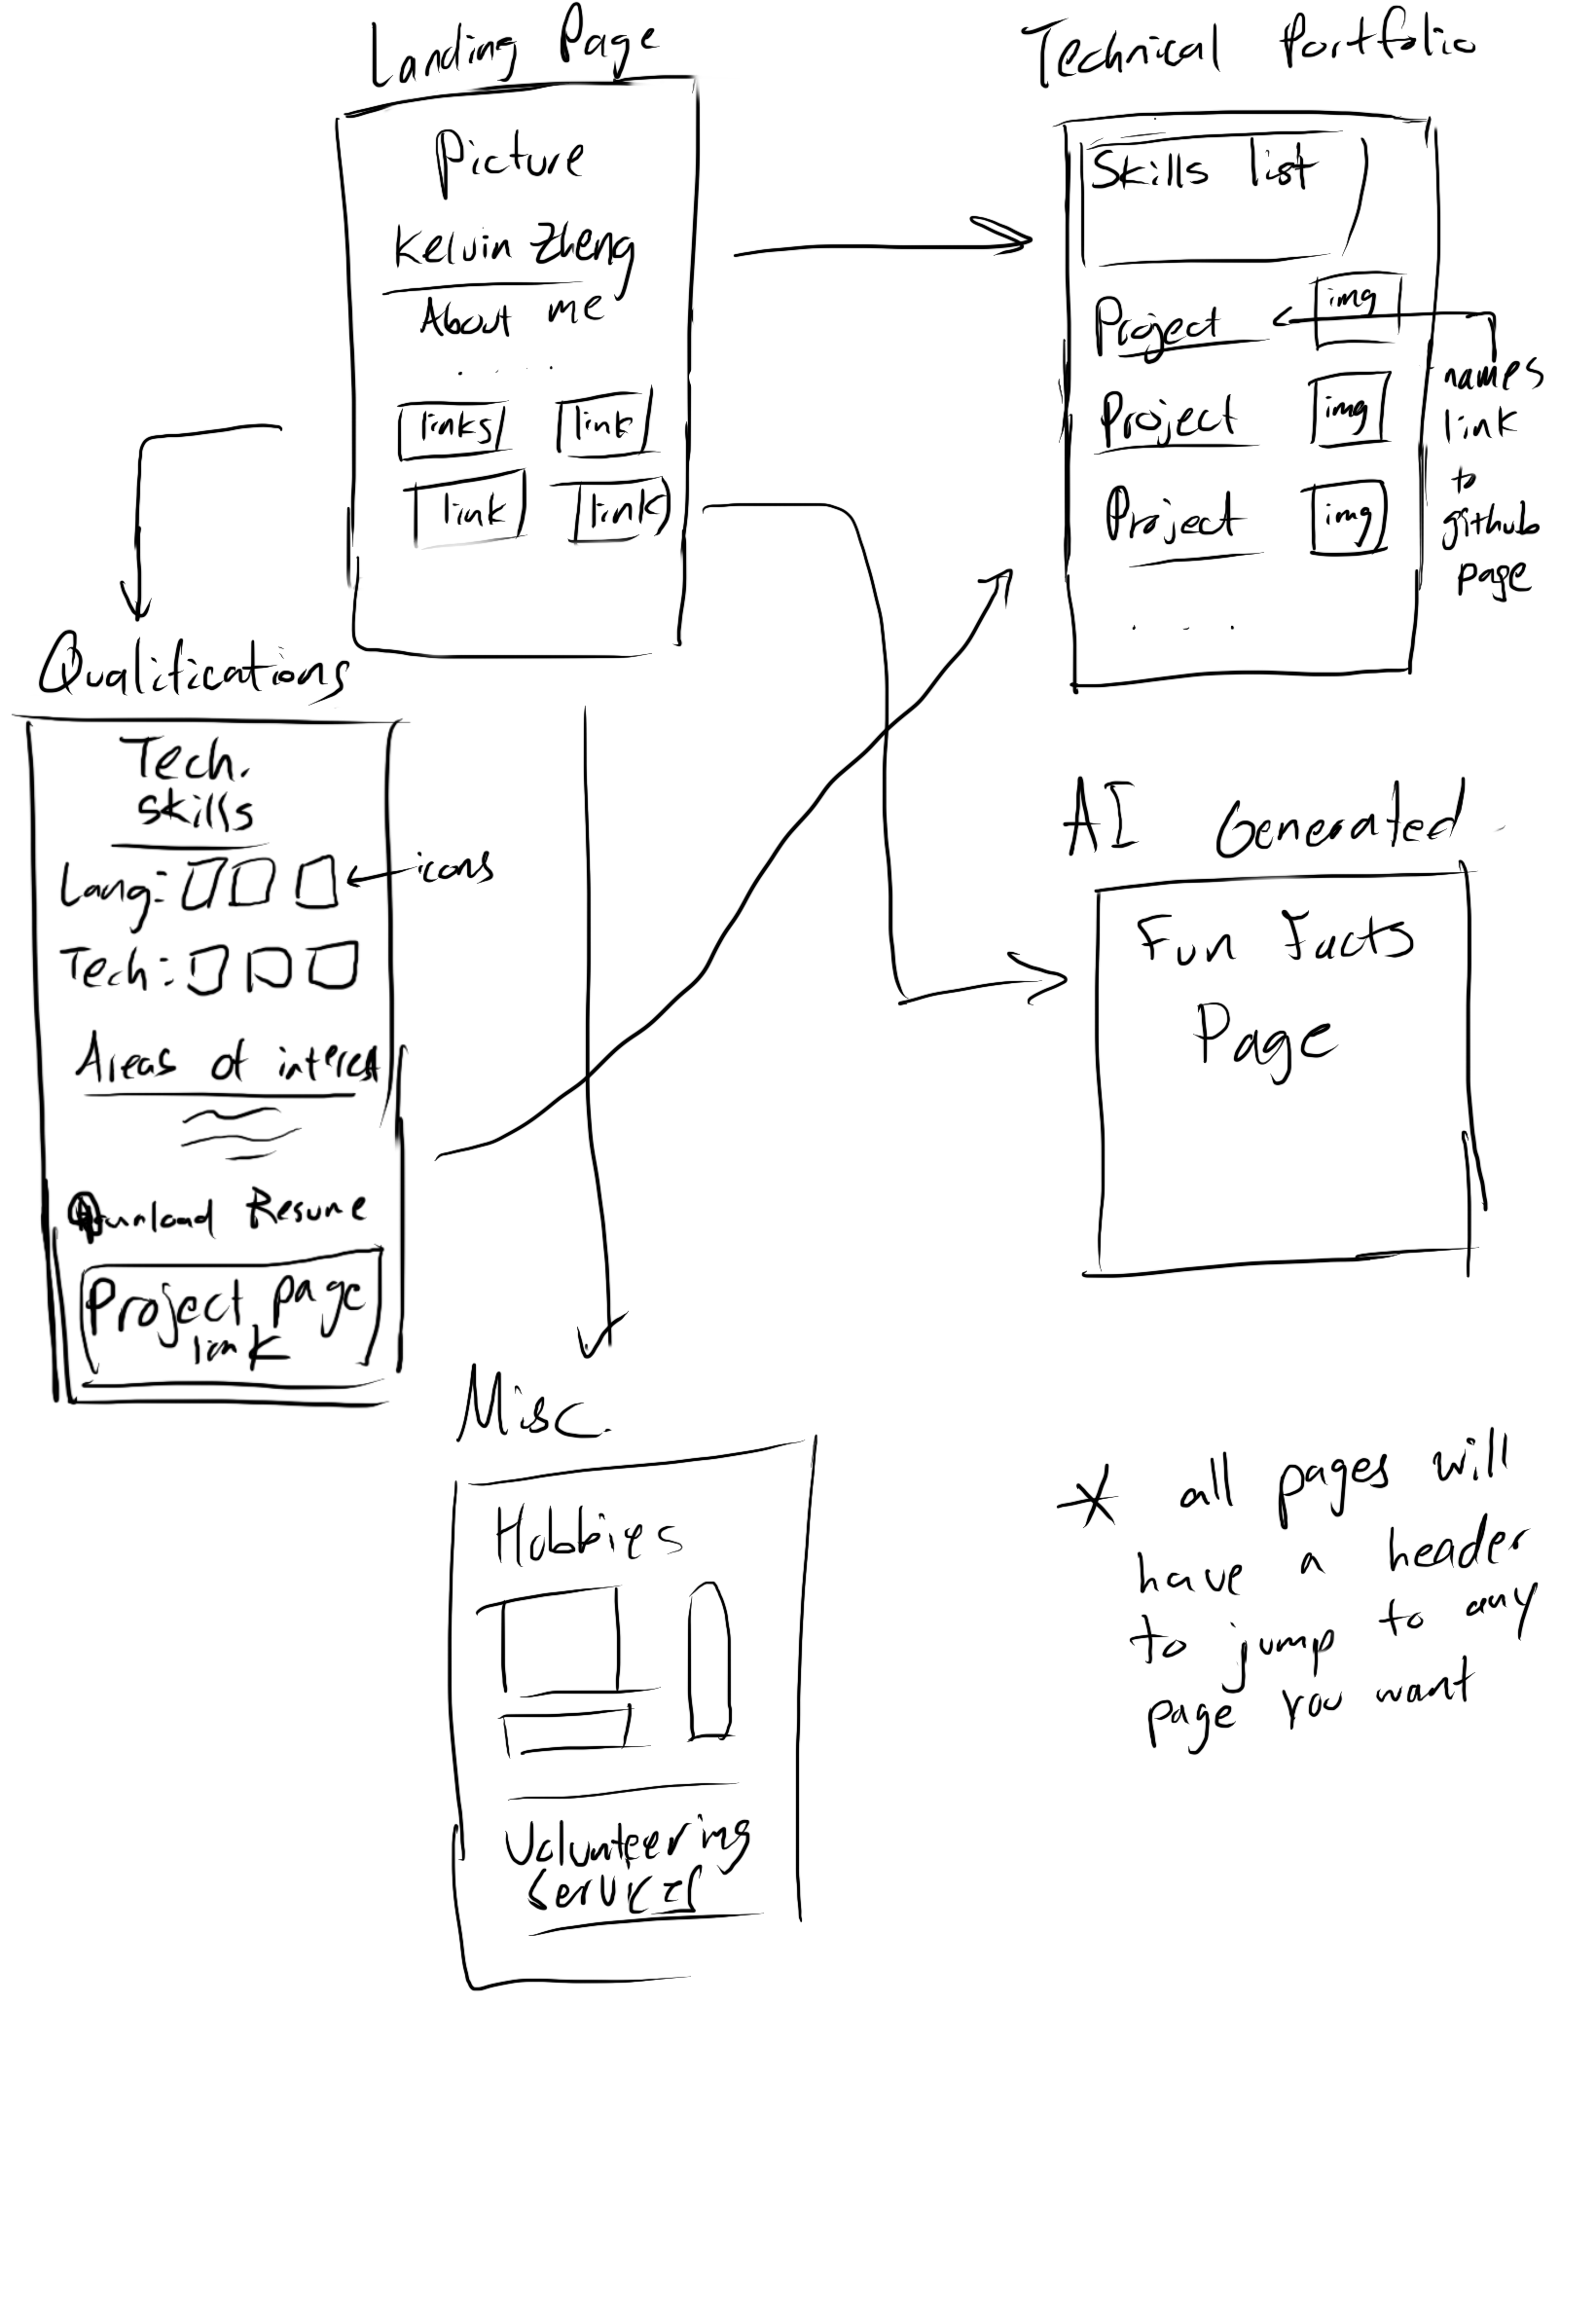 Landing Page
Picture
Kelvin Zheng
About me
. . . .
links link
link link
Technical Portfolio
Skills list
Project img
Project img
Project img
. . .
names
link
to
github
page
Qualifications
Tech.
skills
Lang:
icons
Tech:
Areas of interest
Download Resume
Project page
link
AI Generated
Fun Facts
Page
Misc.
Hobbies
Volunteering
services
* all pages will
have a header
to jump to any
page you want